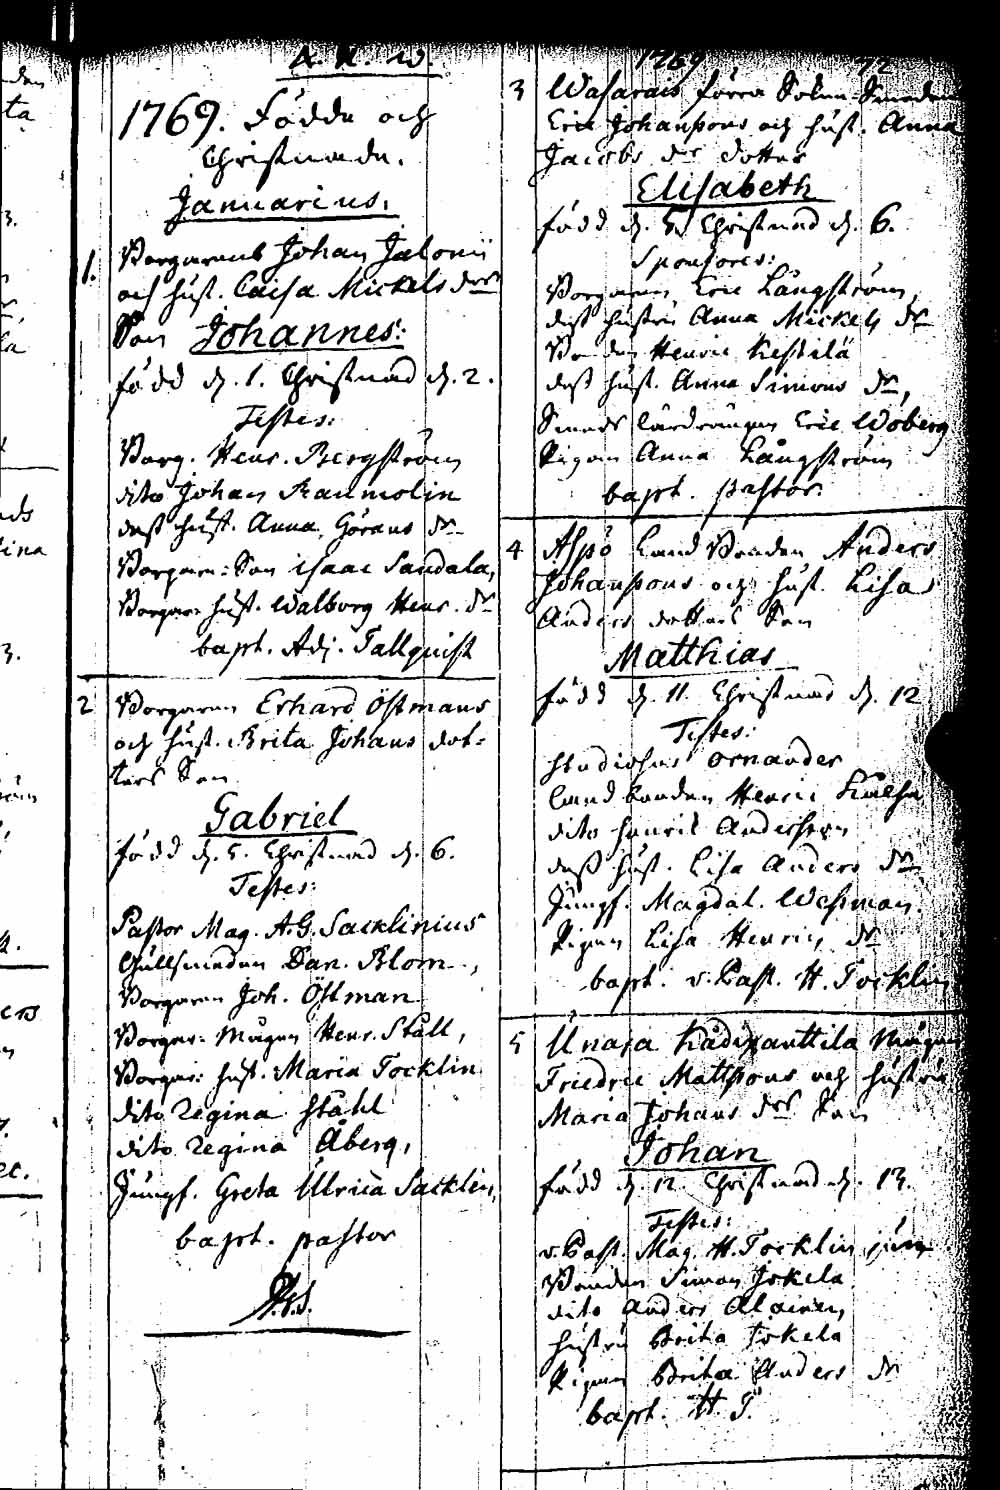 1769. Födde och
Christnade.
Januarius.
1. Borgarens Johan Jalonii
och hust. Caisa Mickels drs
Son Johannes:
född d. 1. Christnad d. 2.
Testes:
Borg. Henr. Bergström
dito Johan Raumolin
dess hust. Anna Görans dr
Borgare: Son isaac Sandala,
Borgar: hust. Walborg Henr. dr
bapt. Adj. Tallquist
2 Borgaren Erhard Östmans
och hust. Brita Johans dot-
ters Son
Gabriel
född d. 5. Christnad d. 6.
Testes:
Pastor Mag. A.G. Sacklinius
Gullsmeden Dan. Blom,
Borgaren Joh. Östman
Borgar: mågen Henr. Ståll,
Borgar: hust. Maria Tocklin
dito Regina Ståhl
dito Regina Åberg,
Jungf. Greta Ulrica Sacklin,
bapt. pastor
1769 72
3 Wasarais Sokne Smeden
Eric Johanssons och hust. Anna
Jacobs drs dotter
Elisabeth
född d. 5. Christnad d. 6.
Sponsores:
Borgaren Eric Långström,
dess hustru Anna Mickels dr
Bonden Henric Kestilä
dess hust. Anna Simons dr,
Smeds lärodrängen Eric Woberg
Pigan Anna Långström
bapt. pastor.
4 Aspö Land Bonden Anders
Johanssons och hust. Lisa
Anders dotters Son
Matthias
född d. 11. Christnad d. 12
Testes:
Studiosus Ornander
Land bonden Henric
dito Henric Andersson
dess hust. Lisa Anders dr
Jungf. Magdal. Wesman.
Pigan Lisa Henrics dr
bapt. v. Past. H. Tocklin
5 Unaja Kådixanttila Mågen
Friedric Mattssons och hustru
Maria Johans drs Son
Johan
född d. 12. Christnad d. 13.
Testes:
v. Past. Mag. H. Tocklin jun
Bonden Simon Jokela
dito Anders Alainen,
hustru Brita Jokela
Pigan Brita Anders dr
bapt. H. T.